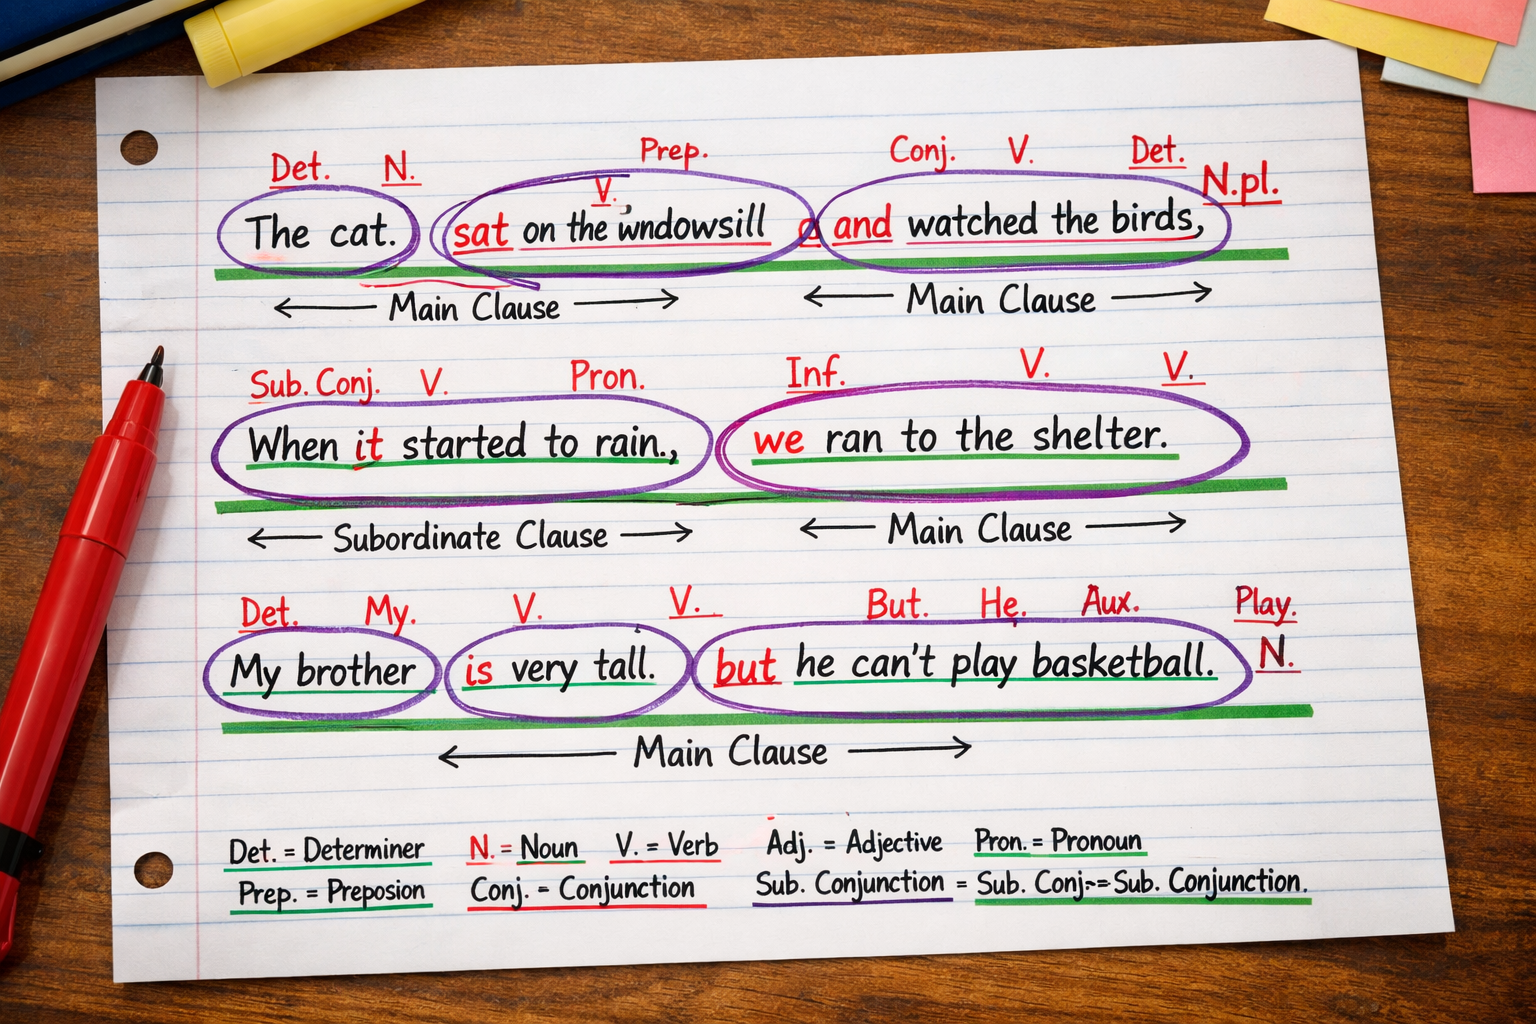 Det. N. Prep. Conj. V. Det. N.pl.
V.
The cat. sat on the wndowsill a and watched the birds,
Main Clause Main Clause
Sub. Conj. V. Pron. Inf. V. V.
When it started to rain., we ran to the shelter.
Subordinate Clause Main Clause
Det. My. V. V. But. He. Aux. Play.
N.
My brother is very tall. but he can't play basketball.
Main Clause
Det. = Determiner N. = Noun V. = Verb Adj. = Adjective Pron. = Pronoun
Prep. = Preposion Conj. = Conjunction Sub. Conjunction = Sub. Conj-=Sub. Conjunction.